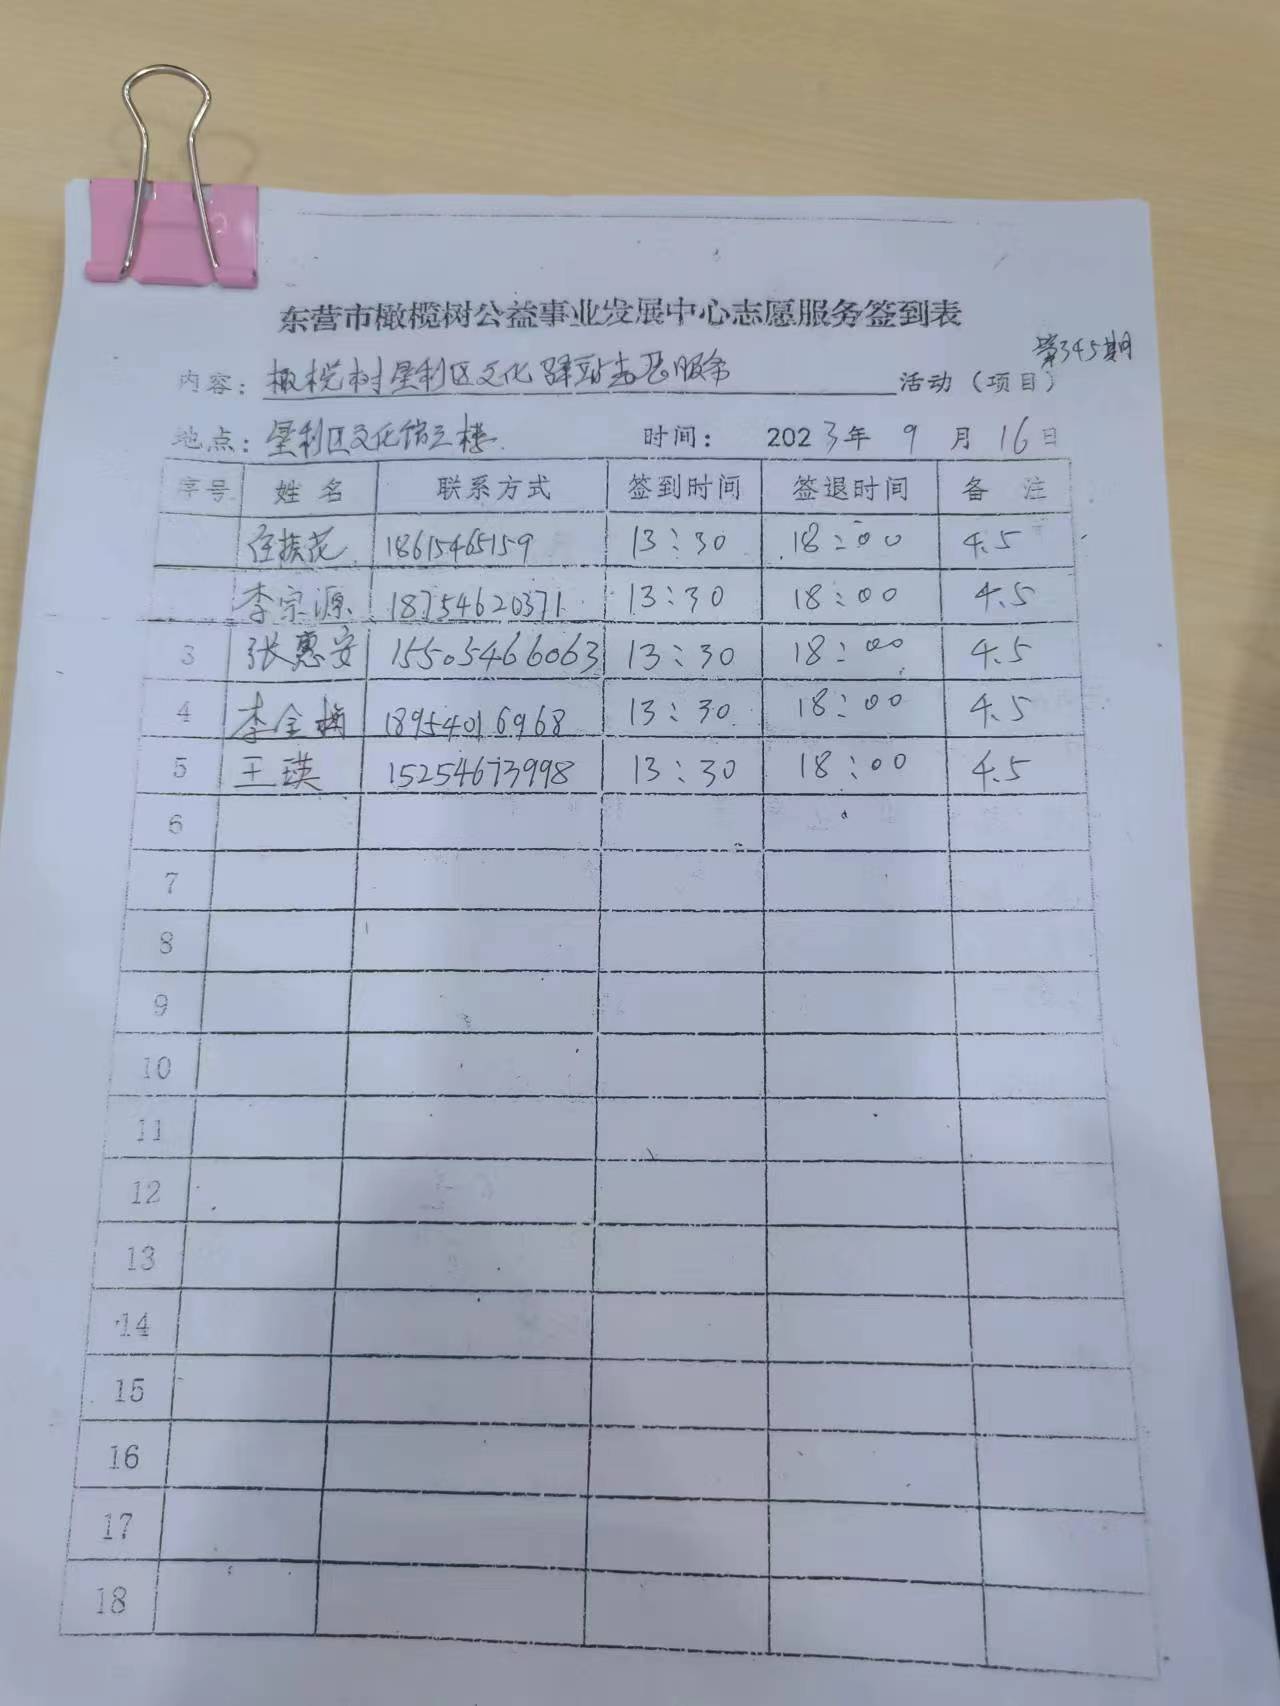 东营市橄榄树公益事业发展中心志愿服务签到表
第345期
内容：橄榄树垦利区文化驿站志愿服务 活动（项目）
地点：垦利区文化馆三楼 时间： 2023年 9 月 16 日
序号 姓名 联系方式 签到时间 签退时间 备 注
18615465159 13:30 18:00 4.5
李宗源 18754620371 13:30 18:00 4.5
3 张惠安 15505466063 13:30 18:00 4.5
4 李金梅 18954016968 13:30 18:00 4.5
5 王瑛 15254673998 13:30 18:00 4.5
6
7
8
9
10
11
12
13
14
15
16
17
18